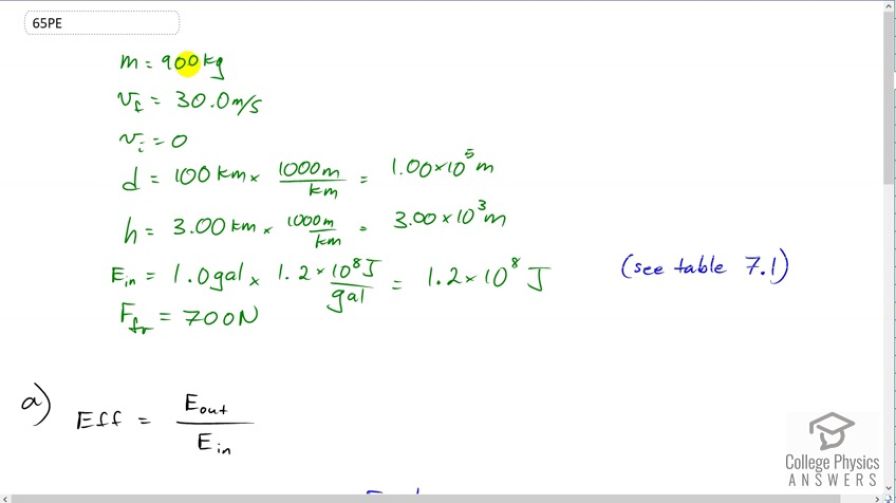 65PE
m = 900kg
v_f = 30.0 m/s
v_i = 0
d = 100 km × 1000m/km = 1.00×10^5 m
h = 3.00 km × 1000m/km = 3.00×10^3 m
E_in = 1.0gal × 1.2×10^8 J/gal = 1.2×10^8 J (see table 7.1)
F_fr = 700N
a) Eff = E_out/E_in
College Physics
ANSWERS